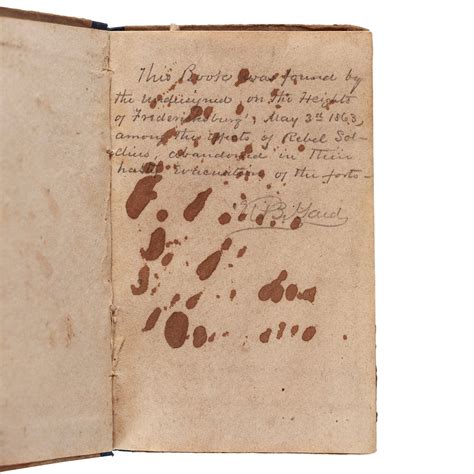 This Book was found by
the undersigned, on the Heights
of Fredericksburg, May 3rd 1863,
among the effects of Rebel Sol-
diers, abandoned in their
hasty Evacuation of the forts-